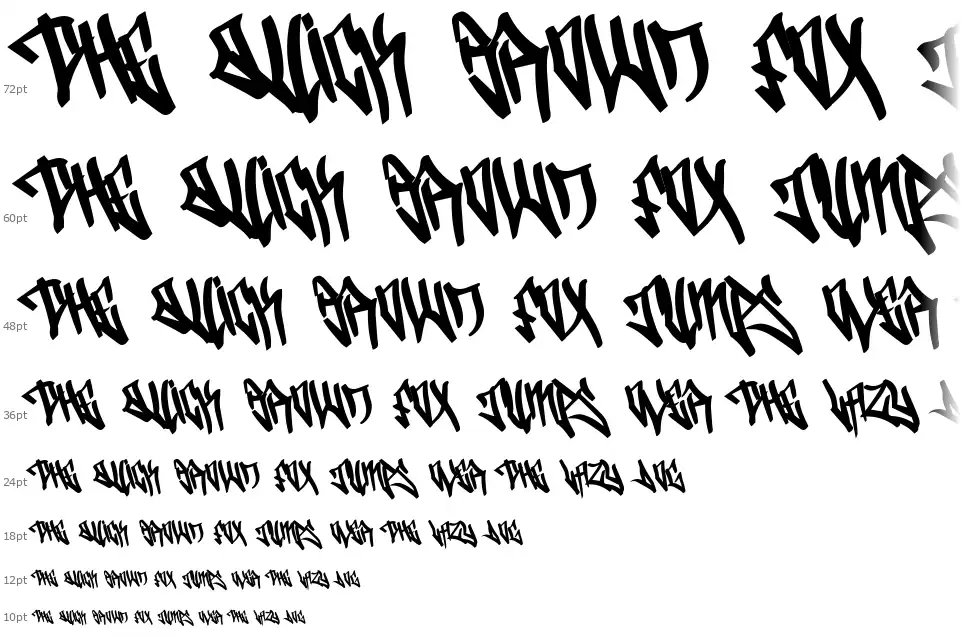 72pt THE QUICK BROWN FOX J
60pt THE QUICK BROWN FOX JUMPS
48pt THE QUICK BROWN FOX JUMPS OVER
36pt THE QUICK BROWN FOX JUMPS OVER THE LAZY
24pt THE QUICK BROWN FOX JUMPS OVER THE LAZY DOG
18pt THE QUICK BROWN FOX JUMPS OVER THE LAZY DOG
12pt THE QUICK BROWN FOX JUMPS OVER THE LAZY DOG
10pt THE QUICK BROWN FOX JUMPS OVER THE LAZY DOG